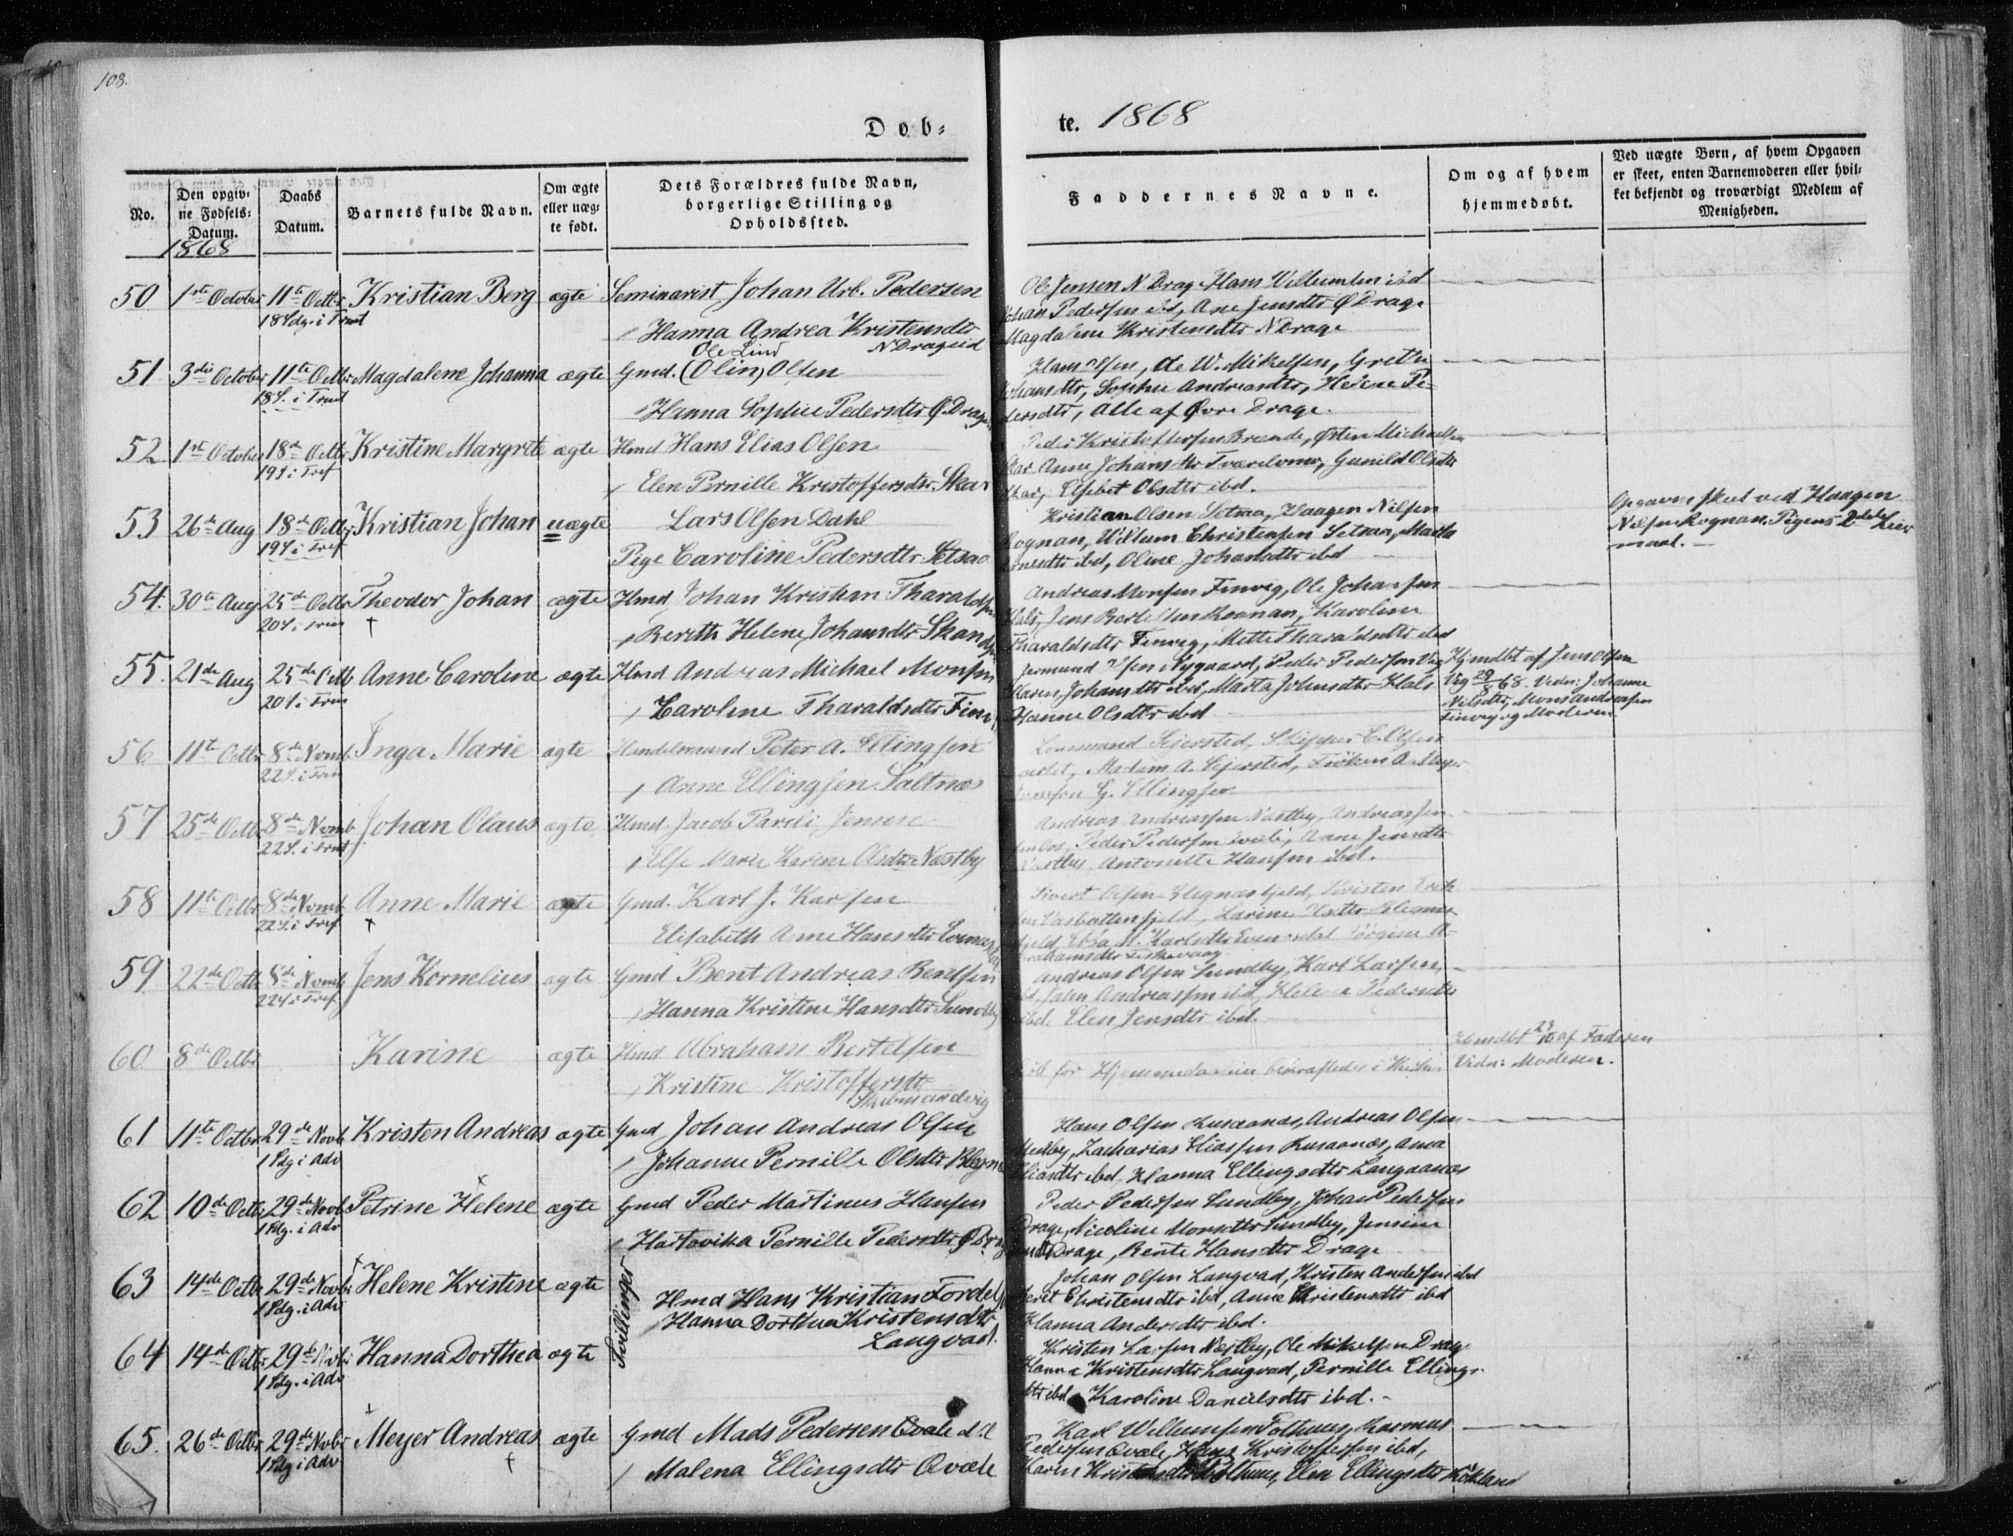 108.
Døb-
te. 1868
No.
Den opgiv-
ne Fødsels-
Datum.
Daabs
Datum.
Barnets fulde Navn.
Om ægte
eller uæg-
te født.
Dets Forældres fulde Navn,
borgerlige Stilling og
Opholdssted.
Faddernes Navne.
Om og af hvem
hjemmedøbt.
Ved uægte Børn, af hvem Opgaven
er skeet, enten Barnemoderen eller hvil-
ket bekjendt og troværdigt Medlem af
Menigheden.
1868
50 1ste October 11te Octbr Kristian Berg ægte Seminarist Johan Urb. Pedersen
18 Sdg. i Trint
Hanna Andrea Kristensdtr
N Drageid
Ole Jensen N Drage Hans Willumsen ibd
Johan Pedersen ibd, Ane Jensdtr Ø Drage
Magdalene Kristensdtr N Drage
51 3die October 11te Octbr Magdalene Johanna ægte Gmd. (Olin) Olsen
Ole Lind
18 S. i Trint
Hanna Sophie Pedersdtr Ø. Drage
Hans Olsen, Ole W. Mikelsen, Grethe
Johansdtr, Sophie Andreasdtr, Helene Pe-
dersdtr, Alle af Øvre Drage.
52 1ste October 18de Octbr Kristine Margrete ægte Hmd Hans Elias Olsen
19 S i Tref
Elen Pernille Kristoffersdtr Skar
Peder Kristoffersen Brænde, Østen Michaelsen
Skar Anne Johansdtr Gunild Olsdtr
Skar, Elsebet Olsdtr ibd.
53 26de Aug 18de Octbr Kristian Johan uægte Lars Olsen Dahl
19 S i Tref
Pige Caroline Pedersdtr Setsaa
Kristian Olsen Setsaa, Haagen Nilsen
Rognan, Willum Christensen Setsaa, Marta
ibd, Oline Johansdtr ibd
Opgaven skeet ved Haagen
Nilsen Rognan. Pigens 2det Leier
maal.
54. 30te Aug 25de Octbr Theodor Johan ægte Hmd Johan Kristian Tharaldsen
20 S i Trin †
Berith Helene Johansdtr
Andreas Monsen Finvig, Ole Johansen
Hals, Jens Rognan, Karoline
Tharaldsdtr Finvig, Mette Tharaldsdtr ibd
55. 21de Aug 25de Octb Anne Caroline ægte Hmd Andreas Michael Monsen
20 S i Trin
Karoline Tharaldsdtr Finv
Jermund Nygaard, Peder Pedersen
Maren Johansdtr ibd, Marta Johnsdtr Hals
Hanne Olsdtr ibd
Hjmdbt af Jens Olsen
Vig 29/8 68. Vidn: Johanne
Nilsdtr, Mons Andreasen
Finvig og Moderen
56 11te Octbr 8de Novmb Inga Marie ægte Handelsmand Peter A. Ellingsen
22 S. i Trin
Anne Ellingsen Saltnes
Lensmand Sejersted, Skipper C. Olsen
Madam A. Sejersted, Frøken A. Meyer
G. Ellingsen
57 25de Octb 8de Novmb Johan Olaus ægte Hmd. Jacob Pareli Jensen
22 S. i Trint
Else Marie Karine Olsdtr Næstby
Andreas Andreassen Næstby, Andreas Jen
Peder Pedersen Anne Jensdtr
Næstby, Antonette Hansen ibd.
58 11te Octbr 8de Novmb Anne Marie ægte Gmd. Karl J. Karlsen
22 S. i Tref †
Elisabeth Anne Hansdtr
Sivert Olsen Kristen Erik
Karlsdtr A-
brahamsdtr Fiskevaag
59. 22de Octbr 8de Novmb Jens Kornelius ægte Gmd Bent Andreas Bentsen
22 S i Tref
Hanna Kristine Hansdtr Sundby
Andreas Olsen Sundby, Karl Larsen,
ibd, John Andreassen ibd, Helene Pedersdtr
ibd. Elen Jensdtr ibd.
60. 8de Octbr Karine ægte Hmd Abraham Bertelsen
Kristine Kristoffersdtr
død før Hjemmedaaben bekræftedes i Kirken
Hjmdbt 23/10 af Faderen
Vidn: Moderen.
61 11te Octbr 29de Novb Kristen Andreas ægte Gmd Johan Andreas Olsen
1 Sdg i Adv
Johanne Pernille Olsdtr
Hans Olsen Kusaanæs, Andreas Olsen
Medby, Zacharias Eliassen Kusaanæs, Anna
Eliasdtr ibd, Hanna Ellingsdtr Langaanæs
62 10de Octbr 29de Novb Petrine Helene ægte Gmd Peder Martinus Hansen
1 Sdg. i Adv †
Hartovika Pernille Pedersdtr Ø Drag
Peder Pedersen Sundby, Johan Pedersen
Drage, Nicoline Monsdtr Sundby, Jensine
Drage, Bente Hansdtr Drage
63 14de Octbr 29de Novbr Helene Kristine ægte
1 Sdg. i Adv
Tvillinger
Hmd Hans Kristian Tordels
Hanna Dorthea Kristensdtr
Langvad.
Johan Olsen Langvad, Kristen Andersen ibd
Beret Christensdtr ibd, Anne Christensdtr ibd
Hanna Andersdtr ibd.
64 14de Octbr 29de Nvbr Hanna Dorthea ægte
1 Sdg. i Adv
Kristen Larsen Næstby, Ole Mikelsen Drage
Hanna Kristensdtr Langvad, Pernille Ellings-
dtr ibd Karoline Danielsdtr ibd.
65. 26de Octbr 29de Nvbr Meyer Andreas ægte Gmd Mads Pedersen Qvale
1 Sdg i Adv †
Malena Ellingsdtr Qvale
Karl Willumsen Tothaug, Rasmus
Pedersen Qvale, Kristoffersen ibd,
Karen Elen Ellingsdtr Kokland